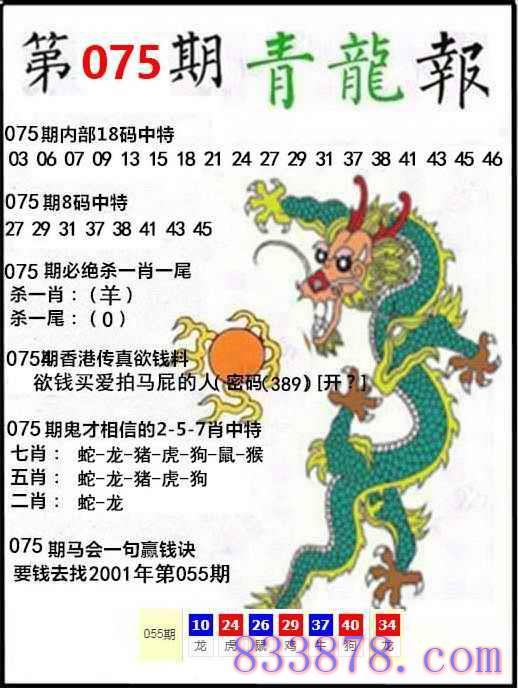 第075期青龍報
075期内部18码中特
03 06 07 09 13 15 18 21 24 27 29 31 37 38 41 43 45 46
075期8码中特
27 29 31 37 38 41 43 45
075 期必绝杀一肖一尾
杀一肖：（羊）
杀一尾：（0）
075期香港传真欲钱料
欲钱买爱拍马屁的人(密码(389) [开？]
075期鬼才相信的2-5-7肖中特
七肖： 蛇-龙-猪-虎-狗-鼠-猴
五肖： 蛇-龙-猪-虎-狗
二肖： 蛇-龙
075期马会一句赢钱诀
要钱去找2001年第055期
055期 10 24 26 29 37 40 34
龙 虎 鼠 鸡 牛 狗 龙
833878.com